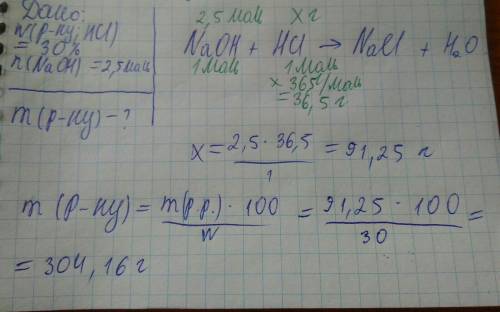 Дано:
w(р-ну, HCl)
= 30%
n(NaOH) = 2,5 моль
m(р-ну) - ?
2,5 моль x г
NaOH + HCl → NaCl + H₂O
1 моль 1 моль
× 36,5 г/моль
= 36,5 г
x = 2,5 · 36,5 / 1 = 91,25 г
m (р-ну) = m(р.р.) · 100 / w = 91,25 · 100 / 30 =
= 304,16 г